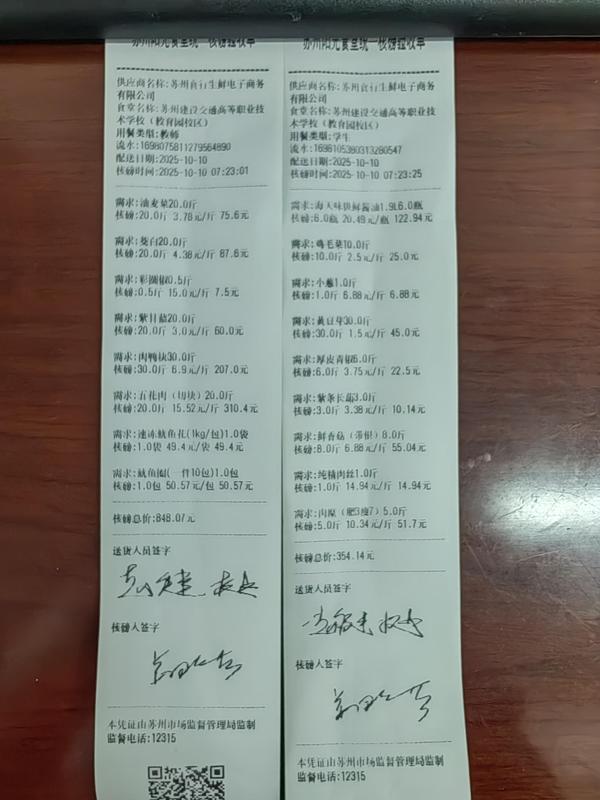 苏州阳光食堂统一核磅验收单
供应商名称:苏州食行生鲜电子商务
有限公司
食堂名称:苏州建设交通高等职业技
术学校(教育园校区)
用餐类型:教师
流水:1698075811279564890
配送日期:2025-10-10
核磅时间:2025-10-10 07:23:01
需求:油麦菜20.0斤
核磅:20.0斤 3.78元/斤 75.6元
需求:茭白20.0斤
核磅:20.0斤 4.38元/斤 87.6元
需求:彩圆椒0.5斤
核磅:0.5斤 15.0元/斤 7.5元
需求:紫甘蓝20.0斤
核磅:20.0斤 3.0元/斤 60.0元
需求:肉鸭块30.0斤
核磅:30.0斤 6.9元/斤 207.0元
需求:五花肉(切块)20.0斤
核磅:20.0斤 15.52元/斤 310.4元
需求:速冻鱿鱼花(1kg/包)1.0袋
核磅:1.0袋 49.4元/袋 49.4元
需求:鱿鱼圈(一件10包)1.0包
核磅:1.0包 50.57元/包 50.57元
核磅总价:848.07元
送货人员签字
核磅人签字
本凭证由苏州市场监督管理局监制
监督电话:12315
苏州阳光食堂统一核磅验收单
供应商名称:苏州食行生鲜电子商务
有限公司
食堂名称:苏州建设交通高等职业技
术学校(教育园校区)
用餐类型:学生
流水:1698105380313280547
配送日期:2025-10-10
核磅时间:2025-10-10 07:23:25
需求:海天味极鲜酱油1.9L6.0瓶
核磅:6.0瓶 20.49元/瓶 122.94元
需求:鸡毛菜10.0斤
核磅:10.0斤 2.5元/斤 25.0元
需求:小葱1.0斤
核磅:1.0斤 6.88元/斤 6.88元
需求:黄豆芽30.0斤
核磅:30.0斤 1.5元/斤 45.0元
需求:厚皮青椒6.0斤
核磅:6.0斤 3.75元/斤 22.5元
需求:紫条长茄3.0斤
核磅:3.0斤 3.38元/斤 10.14元
需求:鲜香菇(带根)8.0斤
核磅:8.0斤 6.88元/斤 55.04元
需求:纯精肉丝1.0斤
核磅:1.0斤 14.94元/斤 14.94元
需求:肉糜(肥3瘦7)5.0斤
核磅:5.0斤 10.34元/斤 51.7元
核磅总价:354.14元
送货人员签字
核磅人签字
本凭证由苏州市场监督管理局监制
监督电话:12315